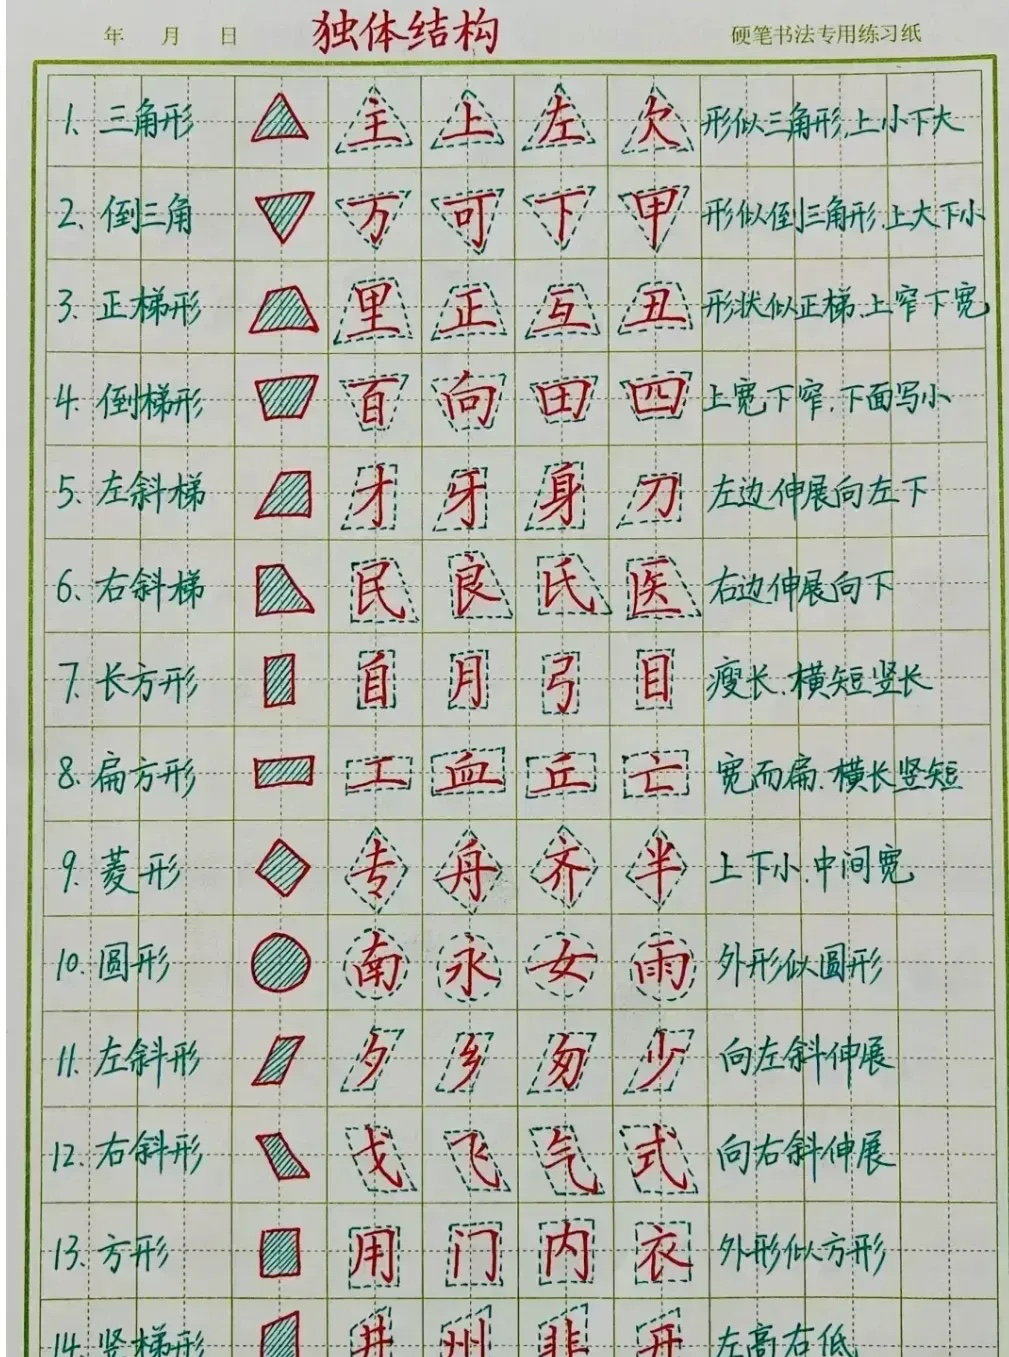 年 月 日 独体结构 硬笔书法专用练习纸
1. 三角形 主 上 左 欠 形似三角形.上小下大
2. 倒三角 万 可 下 甲 形似倒三角形.上大下小
3. 正梯形 里 正 互 丑 形状似正梯.上窄下宽
4. 倒梯形 百 向 田 四 上宽下窄.下面写小
5. 左斜梯 才 牙 身 刀 左边伸展向左下
6. 右斜梯 民 良 氏 医 右边伸展向下
7. 长方形 自 月 弓 目 瘦长.横短竖长
8. 扁方形 工 血 丘 亡 宽而扁.横长竖短
9. 菱形 专 舟 齐 半 上下小.中间宽
10. 圆形 南 永 女 雨 外形似圆形
11. 左斜形 夕 乡 匆 少 向左斜伸展
12. 右斜形 戈 飞 气 式 向右斜伸展
13. 方形 用 门 内 衣 外形似方形
14. 竖梯形 井 州 非 开 左高右低